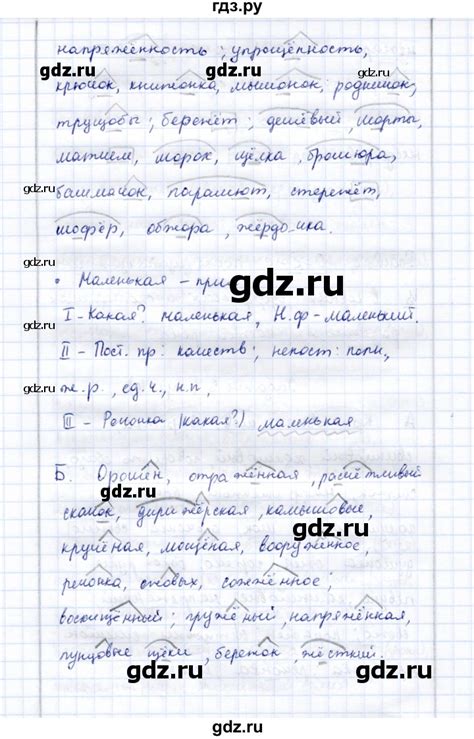 гдз.ру
напряжённость; упрощённость,
gdz.ru gdz.ru
крючок, книжонка, мышонок, родничок,
gdz.ru
трущобы; бережёт; дешёвый, шорты,
матчем, шорох, щёлка, брошюра,
gdz.ru
башмачок, парашют, стережёт,
шофёр, обжора, жёрдочка.
gdz.ru
• Маленькая – при
gdz.ru
I - Какая? маленькая, Н.ф - маленький.
gdz.ru
II - Пост. пр: качеств; непост: полн,
ж.р, ед.ч., и.п,
gdz.ru
III - Речонка (какая?) маленькая
gdz.ru
Б. Орошён, отражённая, расчётливый
gdz.ru
скачок, дирижёрская, камышовые,
gdz.ru
кручёная, мощёная, вооружённое,
речонка, ежовых, сожжённое;
gdz.ru
восхищённый; гружёный, напряжённая,
gdz.ru
пунцовые щёки, бережок, жёсткий.
gdz.ru
gdz.ru